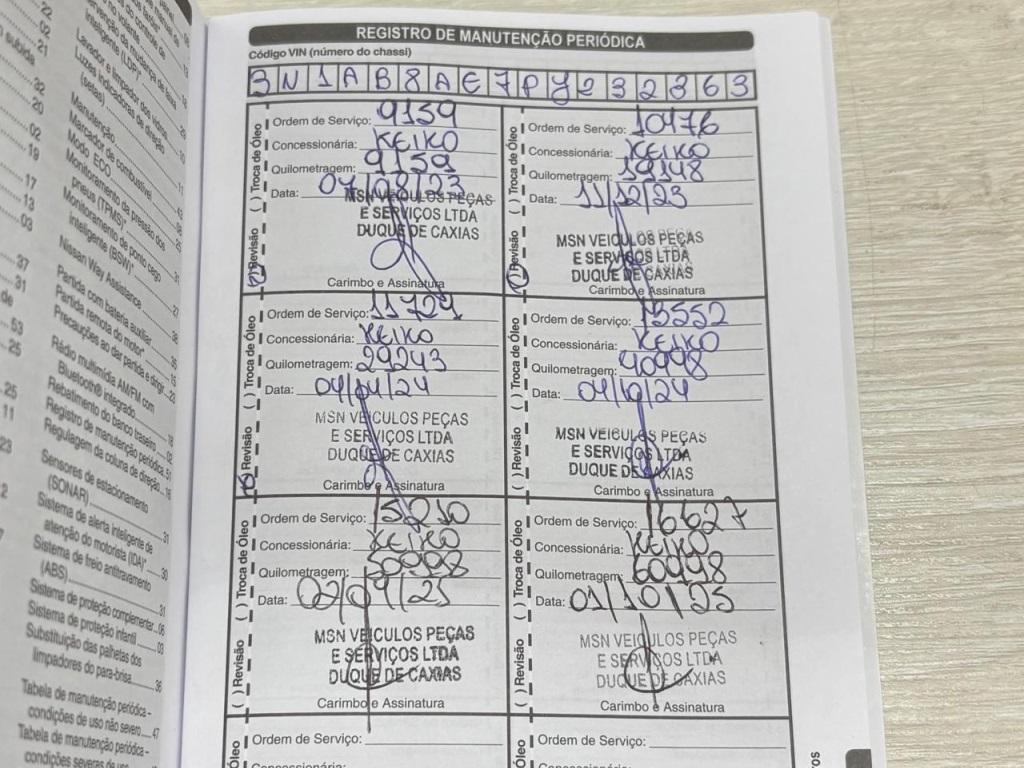 REGISTRO DE MANUTENÇÃO PERIÓDICA
Código VIN (número do chassi)
3N1AB8AE7PY232363
( ) Revisão ( ) Troca de Óleo
Ordem de Serviço: 9159
Concessionária: KEIKO
Quilometragem: 9159
Data:
MSN VEICULOS PEÇAS
E SERVIÇOS LTDA
DUQUE DE CAXIAS
Carimbo e Assinatura
( ) Revisão ( ) Troca de Óleo
Ordem de Serviço: 10476
Concessionária: KEIKO
Quilometragem: 19148
Data: 11/12/23
MSN VEICULOS PEÇAS
E SERVIÇOS LTDA
DUQUE DE CAXIAS
Carimbo e Assinatura
( ) Revisão ( ) Troca de Óleo
Ordem de Serviço: 11724
Concessionária: KEIKO
Quilometragem: 29243
Data: 04/04/24
MSN VEICULOS PEÇAS
E SERVIÇOS LTDA
DUQUE DE CAXIAS
Carimbo e Assinatura
( ) Revisão ( ) Troca de Óleo
Ordem de Serviço: 13552
Concessionária: KEIKO
Quilometragem: 40998
Data: 04/10/24
MSN VEICULOS PEÇAS
E SERVIÇOS LTDA
DUQUE DE CAXIAS
Carimbo e Assinatura
( ) Revisão ( ) Troca de Óleo
Ordem de Serviço: 15210
Concessionária: KEIKO
Quilometragem: 50998
Data:
MSN VEICULOS PEÇAS
E SERVIÇOS LTDA
DUQUE DE CAXIAS
Carimbo e Assinatura
( ) Revisão ( ) Troca de Óleo
Ordem de Serviço: 16627
Concessionária: KEIKO
Quilometragem: 60998
Data: 01/10/25
MSN VEICULOS PEÇAS
E SERVIÇOS LTDA
DUQUE DE CAXIAS
Carimbo e Assinatura
Ordem de Serviço:
Ordem de Serviço:
Lavador e limpador dos vidros
Luzes indicadoras de direção
(setas)
Manutenção
Marcador de combustível
Modo ECO
Monitoramento da pressão dos
pneus (TPMS)*
Monitoramento de ponto cego
inteligente (BSW)*
Nissan Way Assistance
Partida com bateria auxiliar
Partida remota do motor*
Precauções ao dar partida e dirigir
Rádio multimídia AM/FM com
Bluetooth® integrado
Rebatimento do banco traseiro
Registro de manutenção periódica
Regulagem da coluna de direção
Sensores de estacionamento
(SONAR)
Sistema de alerta inteligente de
atenção do motorista (IDA)*
Sistema de freio antitravamento
(ABS)
Sistema de proteção complementar
Sistema de proteção infantil
Substituição das palhetas dos
limpadores do para-brisa
Tabela de manutenção periódica -
condições de uso não severo 47
Tabela de manutenção periódica -